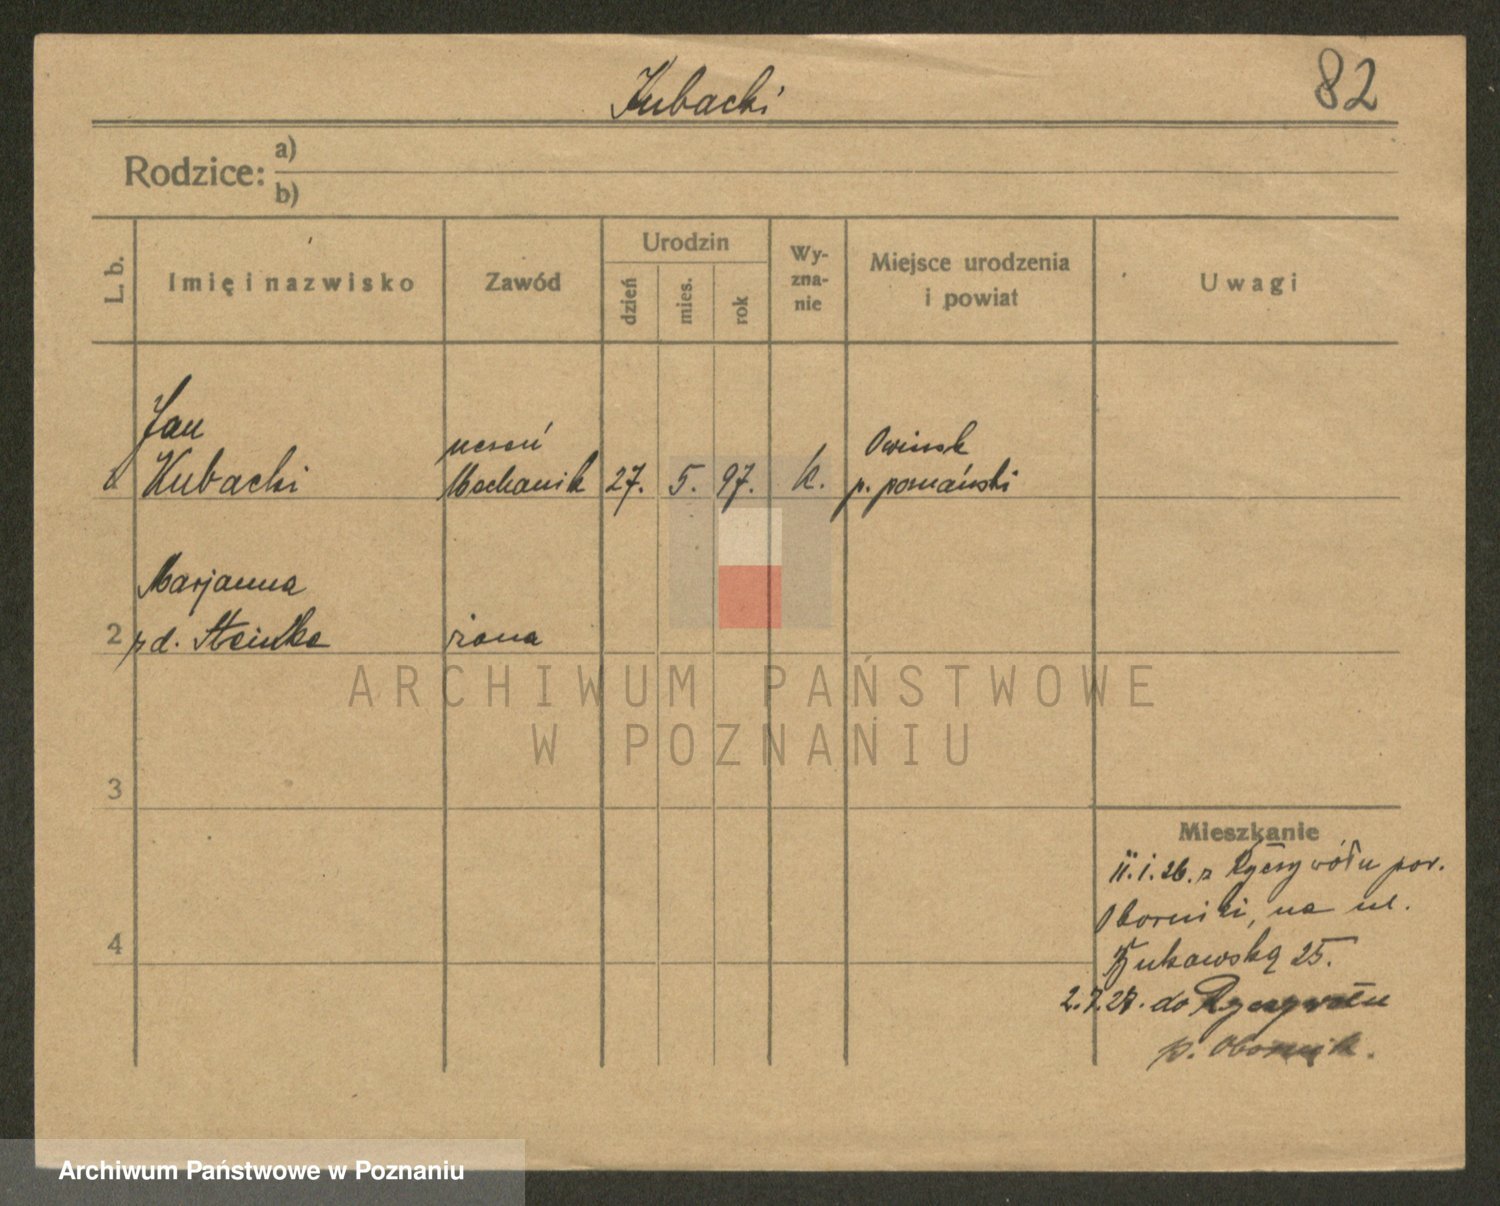 Kubacki
82
Rodzice: a)
b)
L. b.
Imię i nazwisko
Zawód
Urodzin
dzień
mies.
rok
Wy-
zna-
nie
Miejsce urodzenia
i powiat
Uwagi
Jan
Kubacki
uczeń
Mechanik
27. 5. 97. k.
Owinsk
p. poznański
Marjanna
2 zd. Steinke żona
ARCHIWUM PAŃSTWOWE
W POZNANIU
3
Mieszkanie
11.1.26. z Ryczywółu pow.
Oborniki, na ul.
4
Bukowską 25.
2.7.27. do Ryczywółu
p. Obornik.
Archiwum Państwowe w Poznaniu